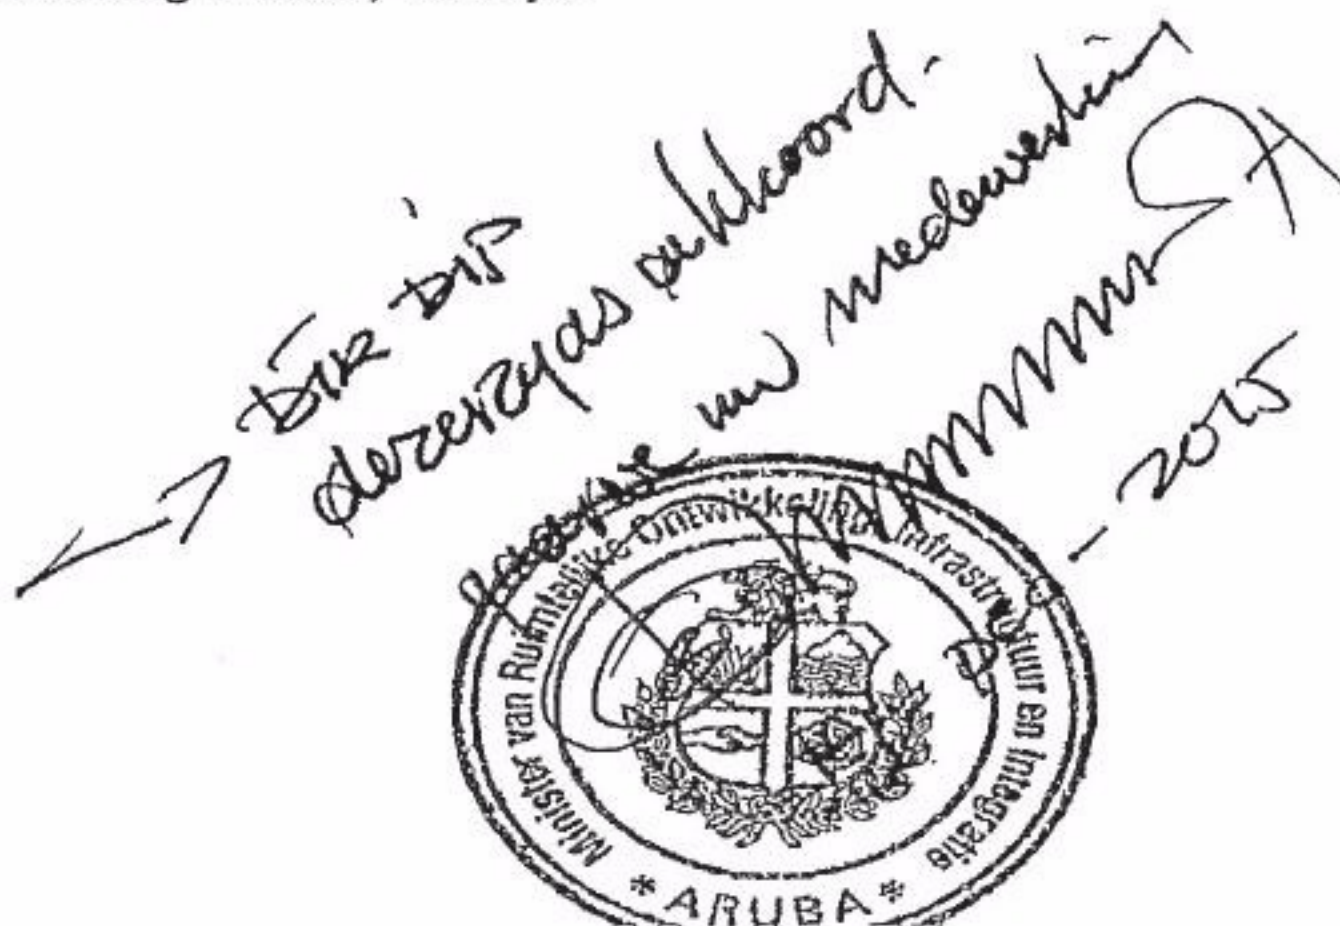 → DIR DIP
dezerzijds akkoord.
uw medewerking
-2015
Minister van Ruimtelijke Ontwikkeling, Infrastructuur en Integratie
* ARUBA *